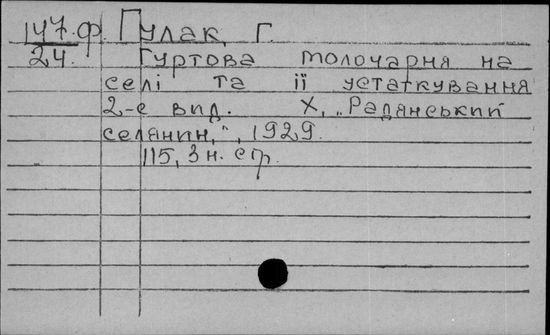 147.ф. Гулак, Г.
24. Гуртова молочарня на
селі та її устаткування
2-е вид. Х, „Радянський
селянин,", 1929.
115, 3 н. стр.